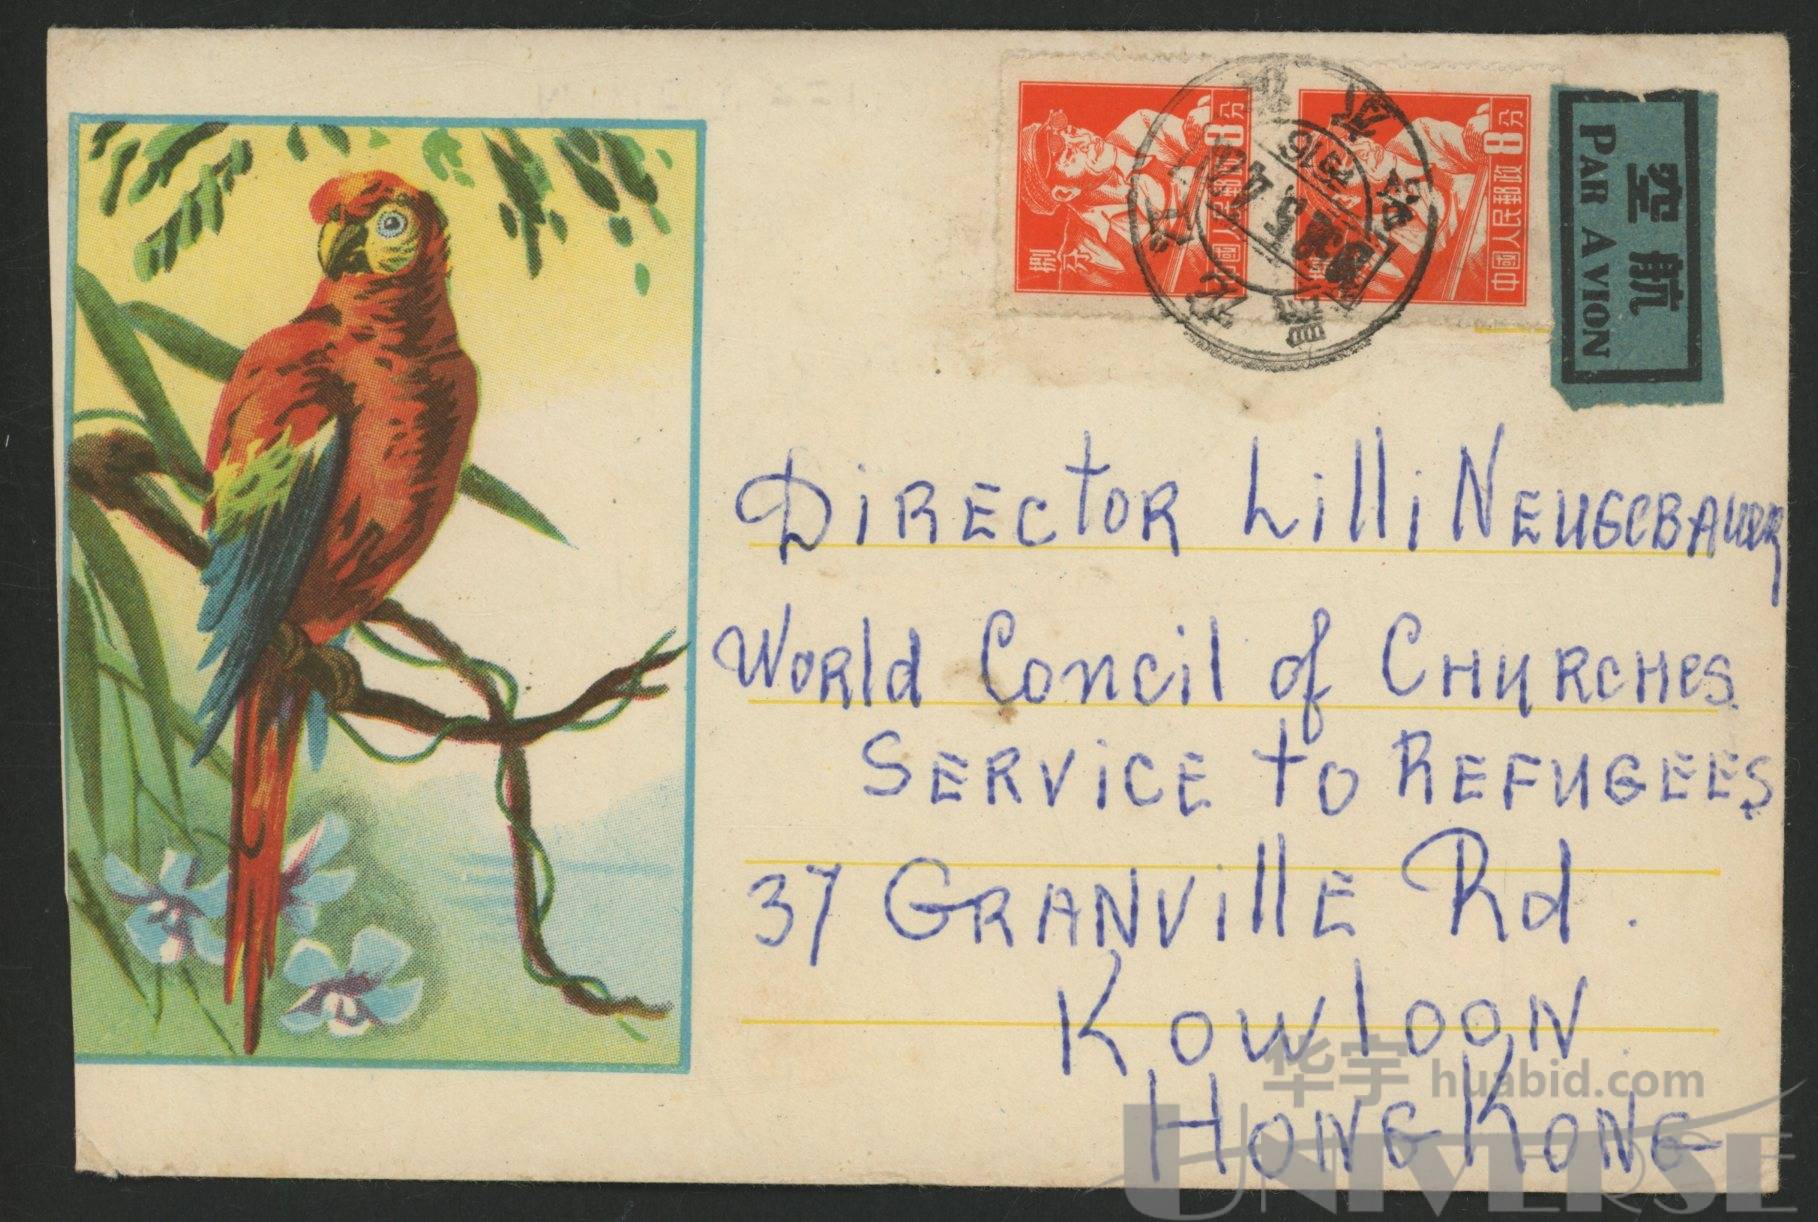 8分
捌分
中國人民郵政
8分
中國人民郵政
空航
PAR AVION
DiRECtOR Lilli NEUGEBAUER
WORld Concil of CHURCHES
SERViCE tO REFUGEES
37 GRANVillE Rd.
KOWlOON
HONG KONG
华宇 huabid.com
UNIVERSE